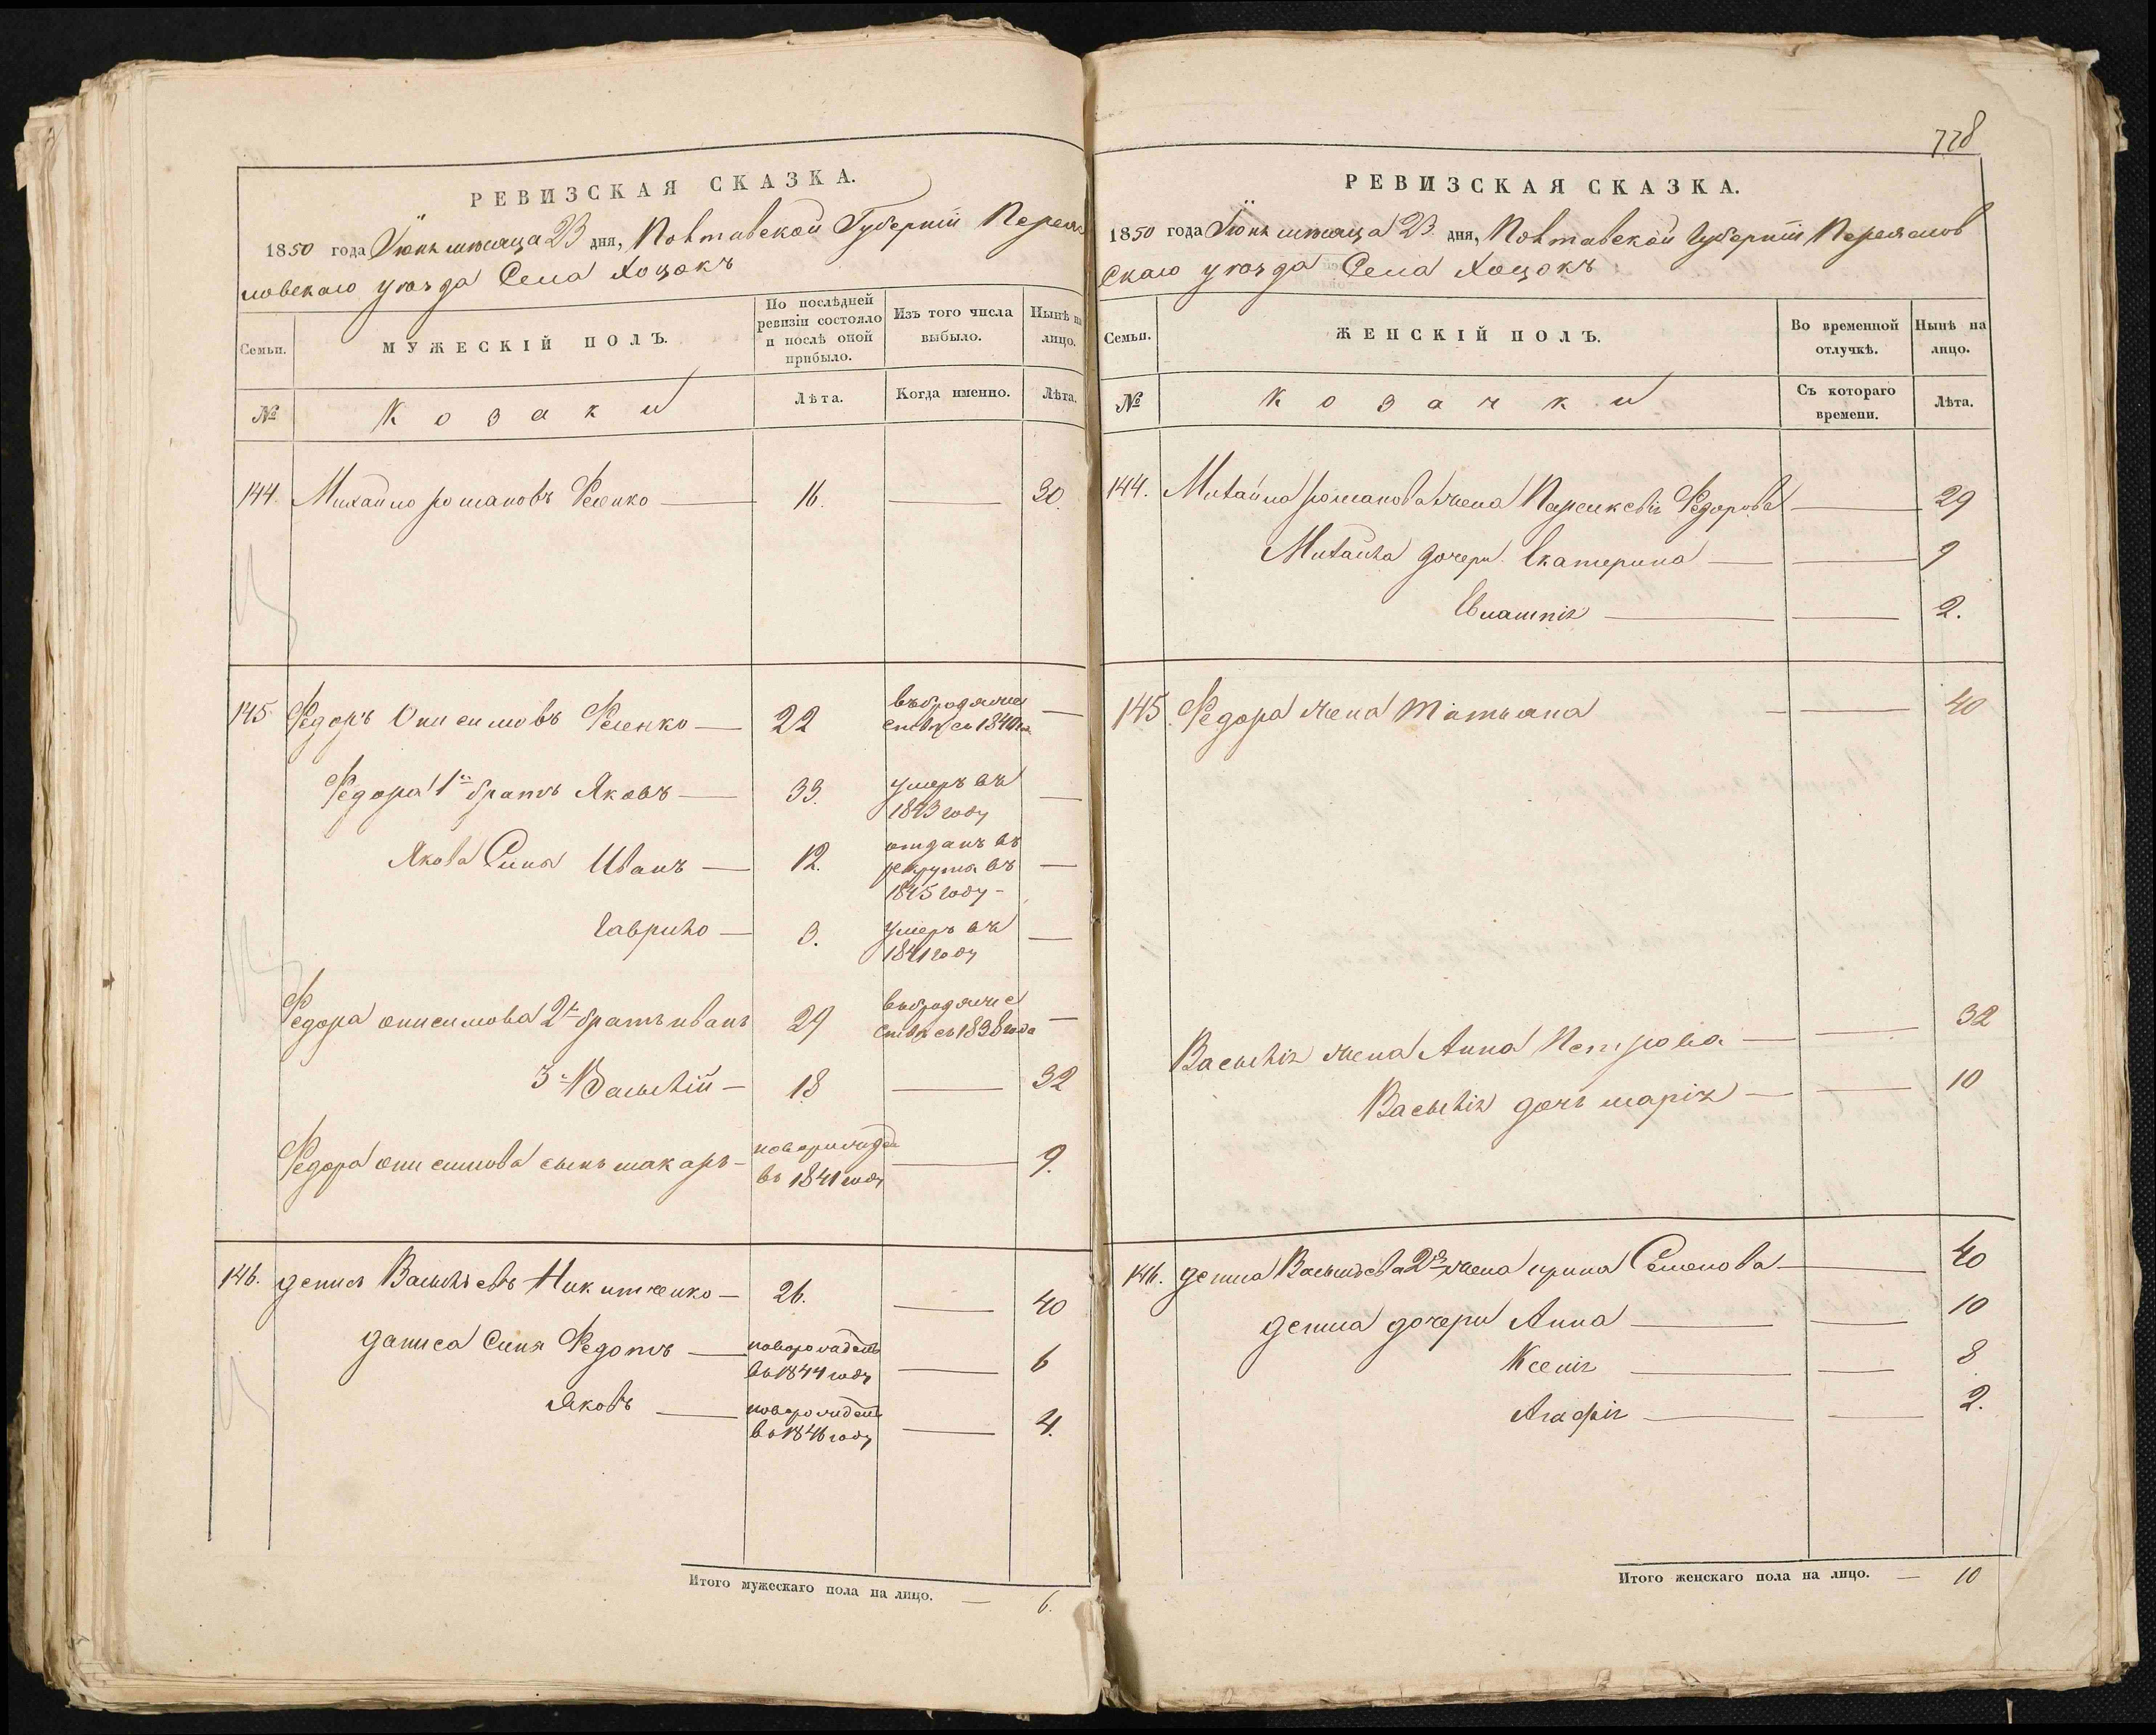 РЕВИЗСКАЯ СКАЗКА.
1850 года Іюнь мѣсяца 23 дня, Полтавской Губерніи Переяс
ловскаго уѣзда Села Хоцокъ
Семьи.
МУЖЕСКІЙ ПОЛЪ.
По послѣдней
ревизіи состояло
и послѣ оной
прибыло.
Изъ того числа
выбыло.
Нынѣ на
лицо.
№
Козаки
Лѣта.
Когда именно.
Лѣта.
144. Михайло романовъ Феенко — 16. — 30.
145 Федоръ Онисимовъ Феенко — 22 въ бродяже
ствѣ съ 1840 го. —
Федора 1й братъ Яковъ — 33. умеръ въ
1843 году —
Якова Сыня Иванъ — 12. отданъ въ
рекрута въ
1845 году — —
Гаврило — 3. умеръ въ
1841 году —
Федора онисимова 2й братъ иванъ 29 въ бродяже
ствѣ съ 1838 года —
3й Василій — 18 — 32
Федора онисимова сынъ макаръ — новорожден
въ 1841 году — 9.
146. денисъ Васильевъ Никитченко — 26. — 40
дениса Сыня Федотъ — новорожденъ
въ 1844 году — 6
Яковъ — новорожденъ
въ 1846 году — 4.
Итого мужескаго пола на лицо. — 6.
778
РЕВИЗСКАЯ СКАЗКА.
1850 года Іюнь мѣсяца 23 дня, Полтавской Губерніи Переяслов
скаго уѣзда Села Хоцокъ
Семьи.
ЖЕНСКІЙ ПОЛЪ.
Во временной
отлучкѣ.
Нынѣ на
лицо.
№
Козачки
Съ котораго
времени.
Лѣта.
144. Михайла романова жена Параскевія Федорова — 29
Михайла дочери Екатерина — — 9
Евлампія — — 2.
145. Федора жена Татьяна — — 40
Василія жена Анна Петрова — — 32
Василія дочь марія — — 10
146. дениса Васильева 2я жена ирина Семенова — 40
дениса дочери Анна — — 10
Ксенія — — 8
Агафія — — 2.
Итого женскаго пола на лицо. — 10